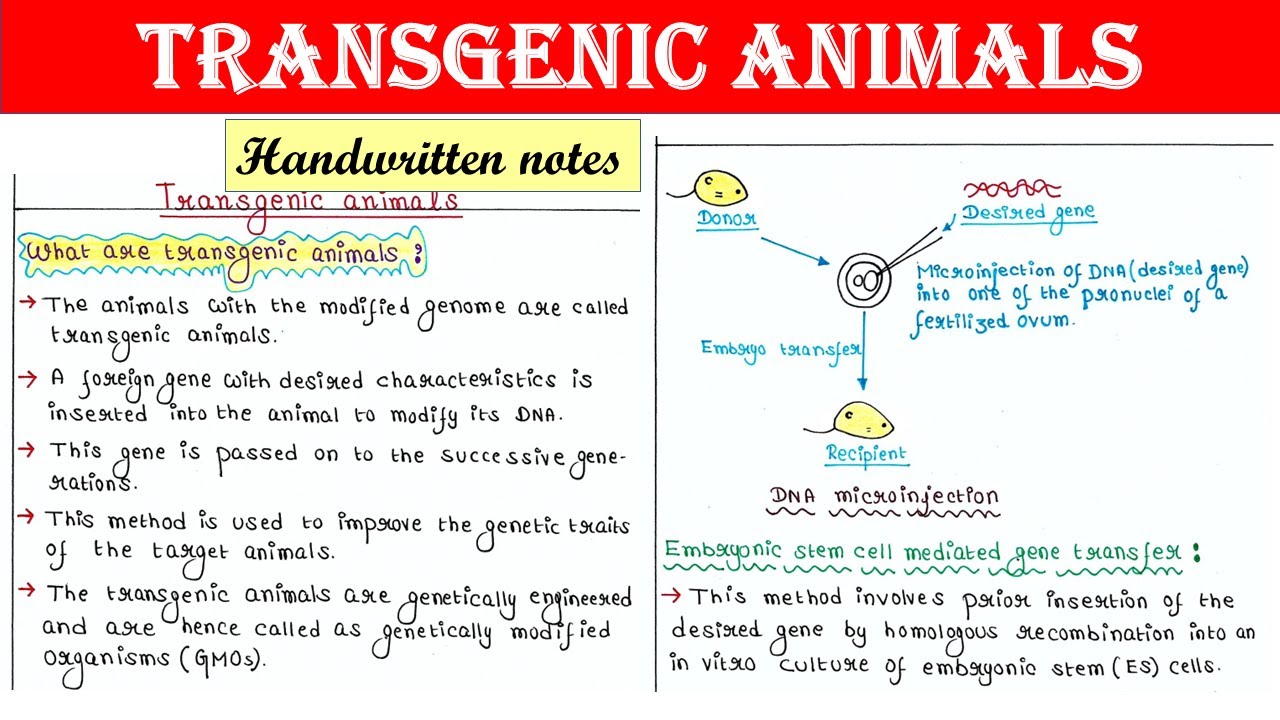 TRANSGENIC ANIMALS
Handwritten notes
Transgenic animals
What are transgenic animals ?
→ The animals with the modified genome are called
transgenic animals.
→ A foreign gene with desired characteristics is
inserted into the animal to modify its DNA.
→ This gene is passed on to the successive gene-
rations.
→ This method is used to improve the genetic traits
of the target animals.
→ The transgenic animals are genetically engineered
and are hence called as genetically modified
organisms (GMOs).
Donor
Desired gene
Microinjection of DNA (desired gene)
into one of the pronuclei of a
fertilized ovum.
Embryo transfer
Recipient
DNA microinjection
Embryonic stem cell mediated gene transfer :
→ This method involves prior insertion of the
desired gene by homologous recombination into an
in vitro culture of embryonic stem (ES) cells.